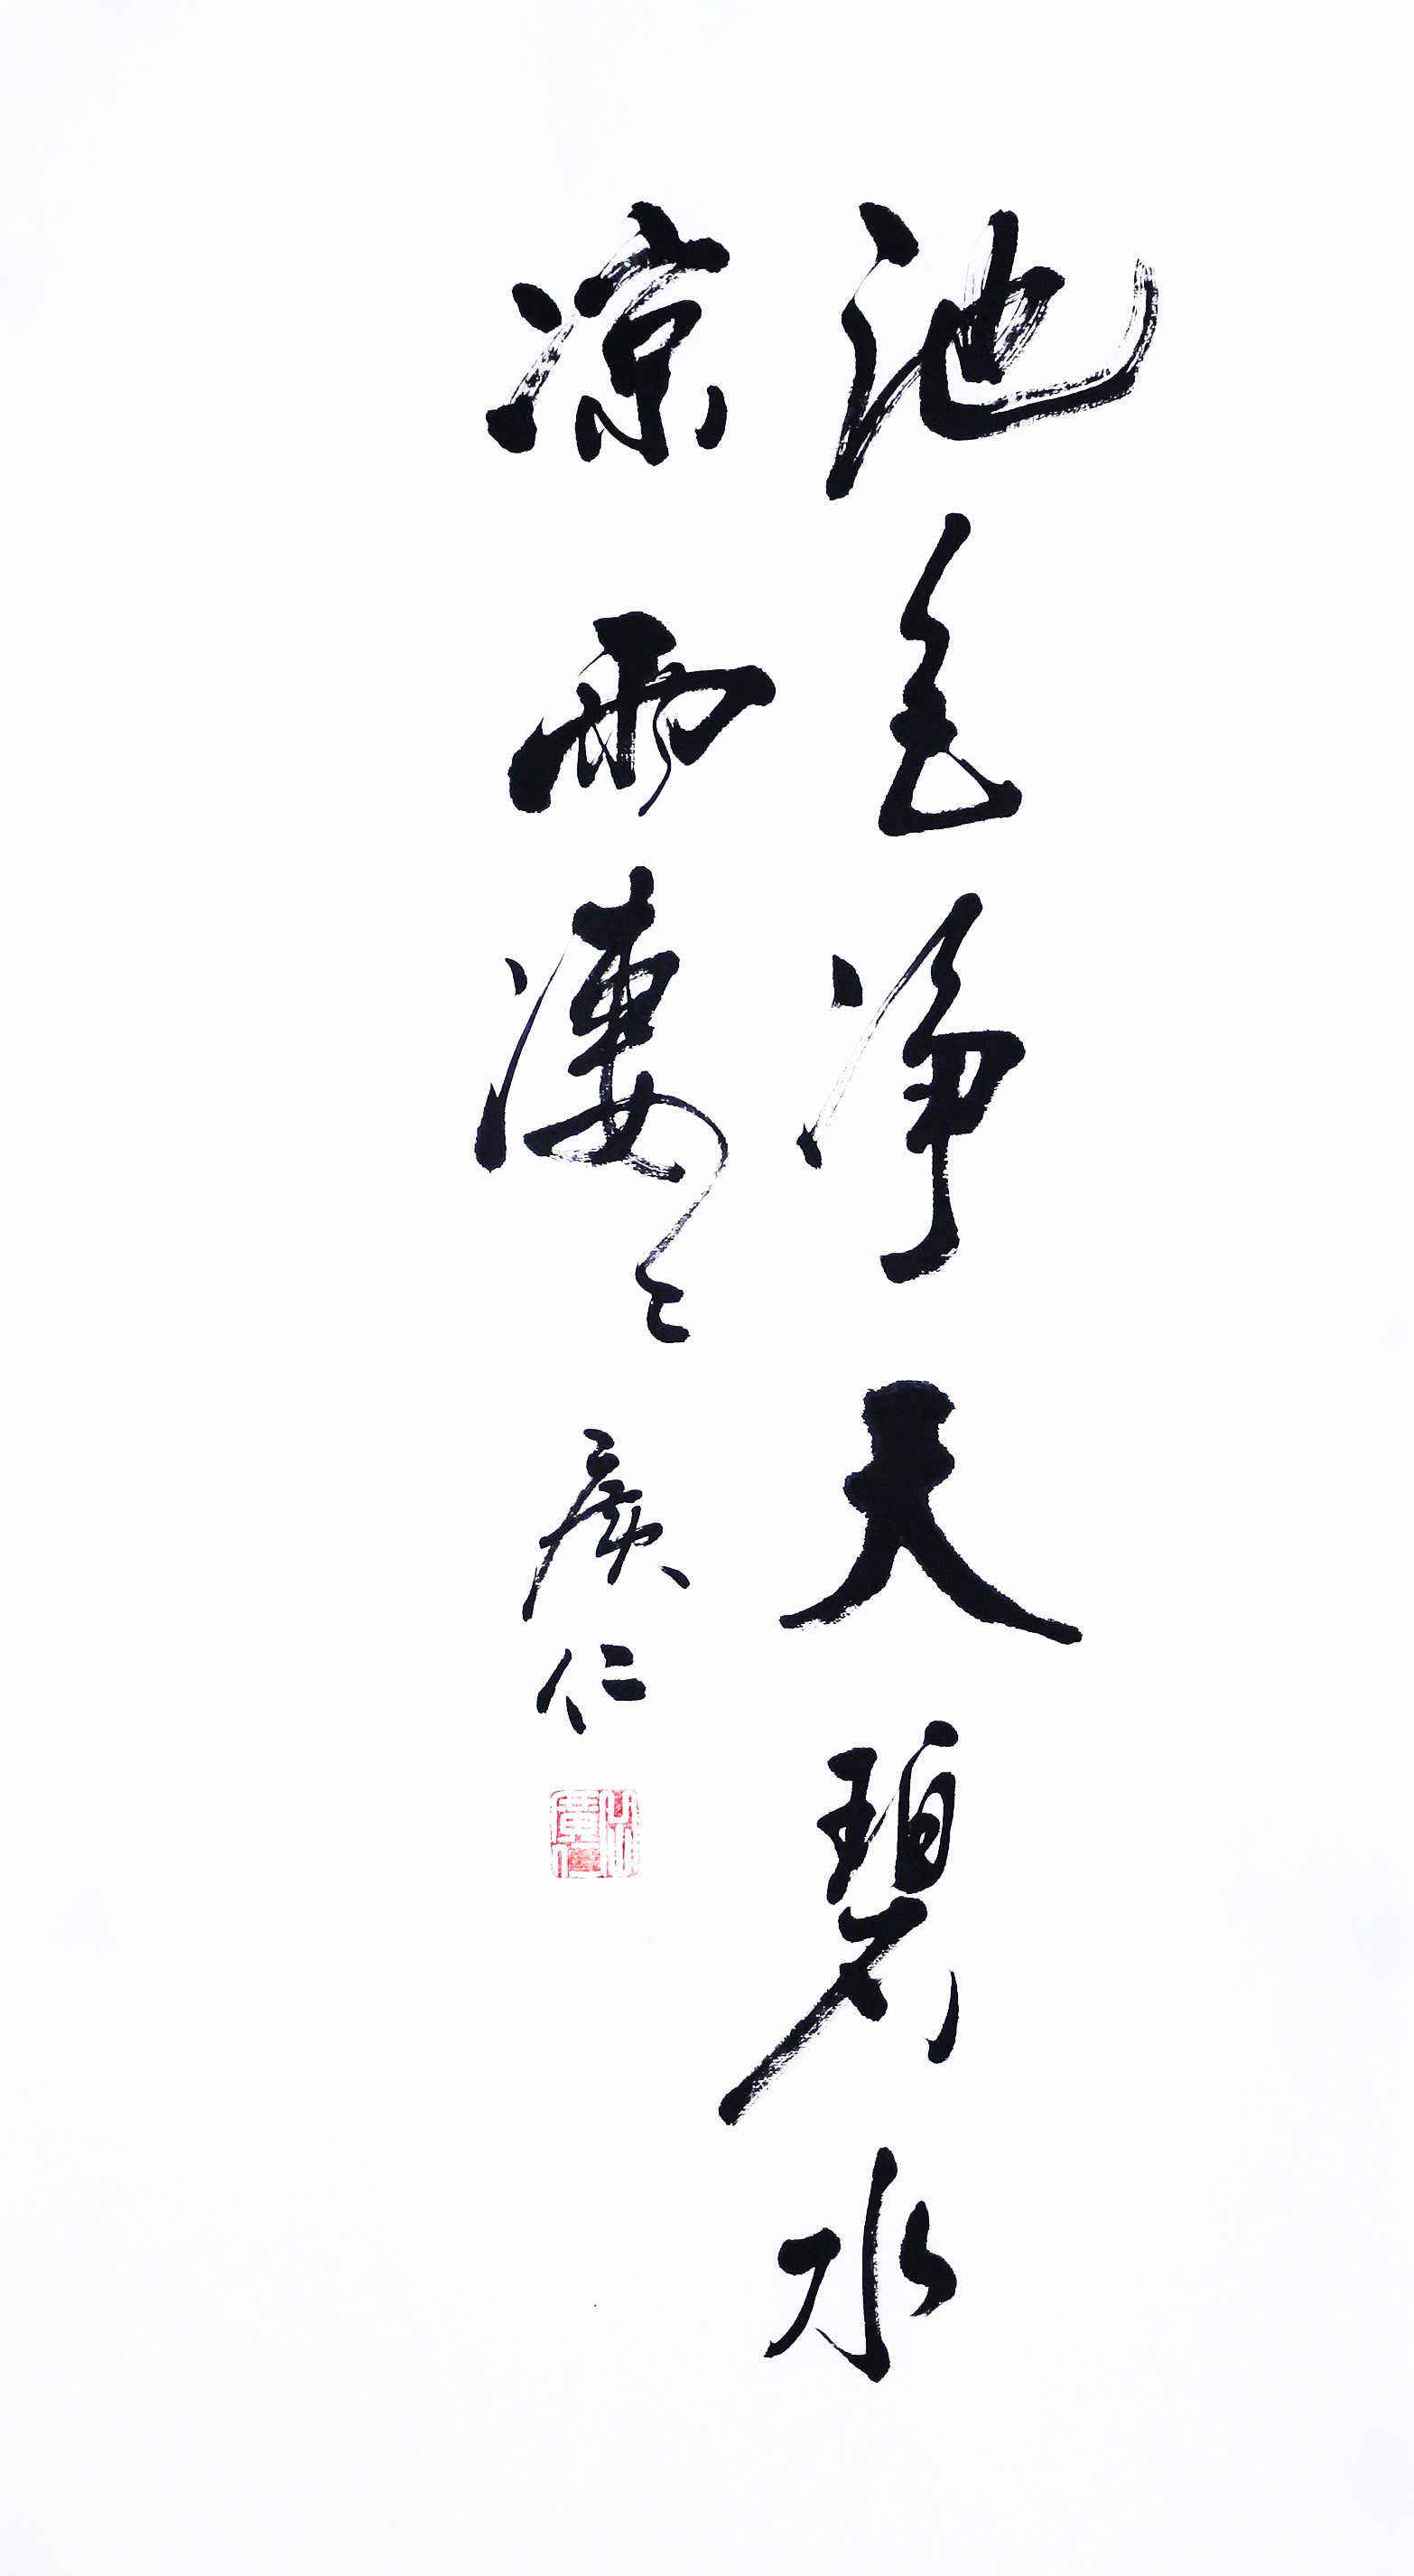 池色净天碧水
凉雨凄々
廣仁